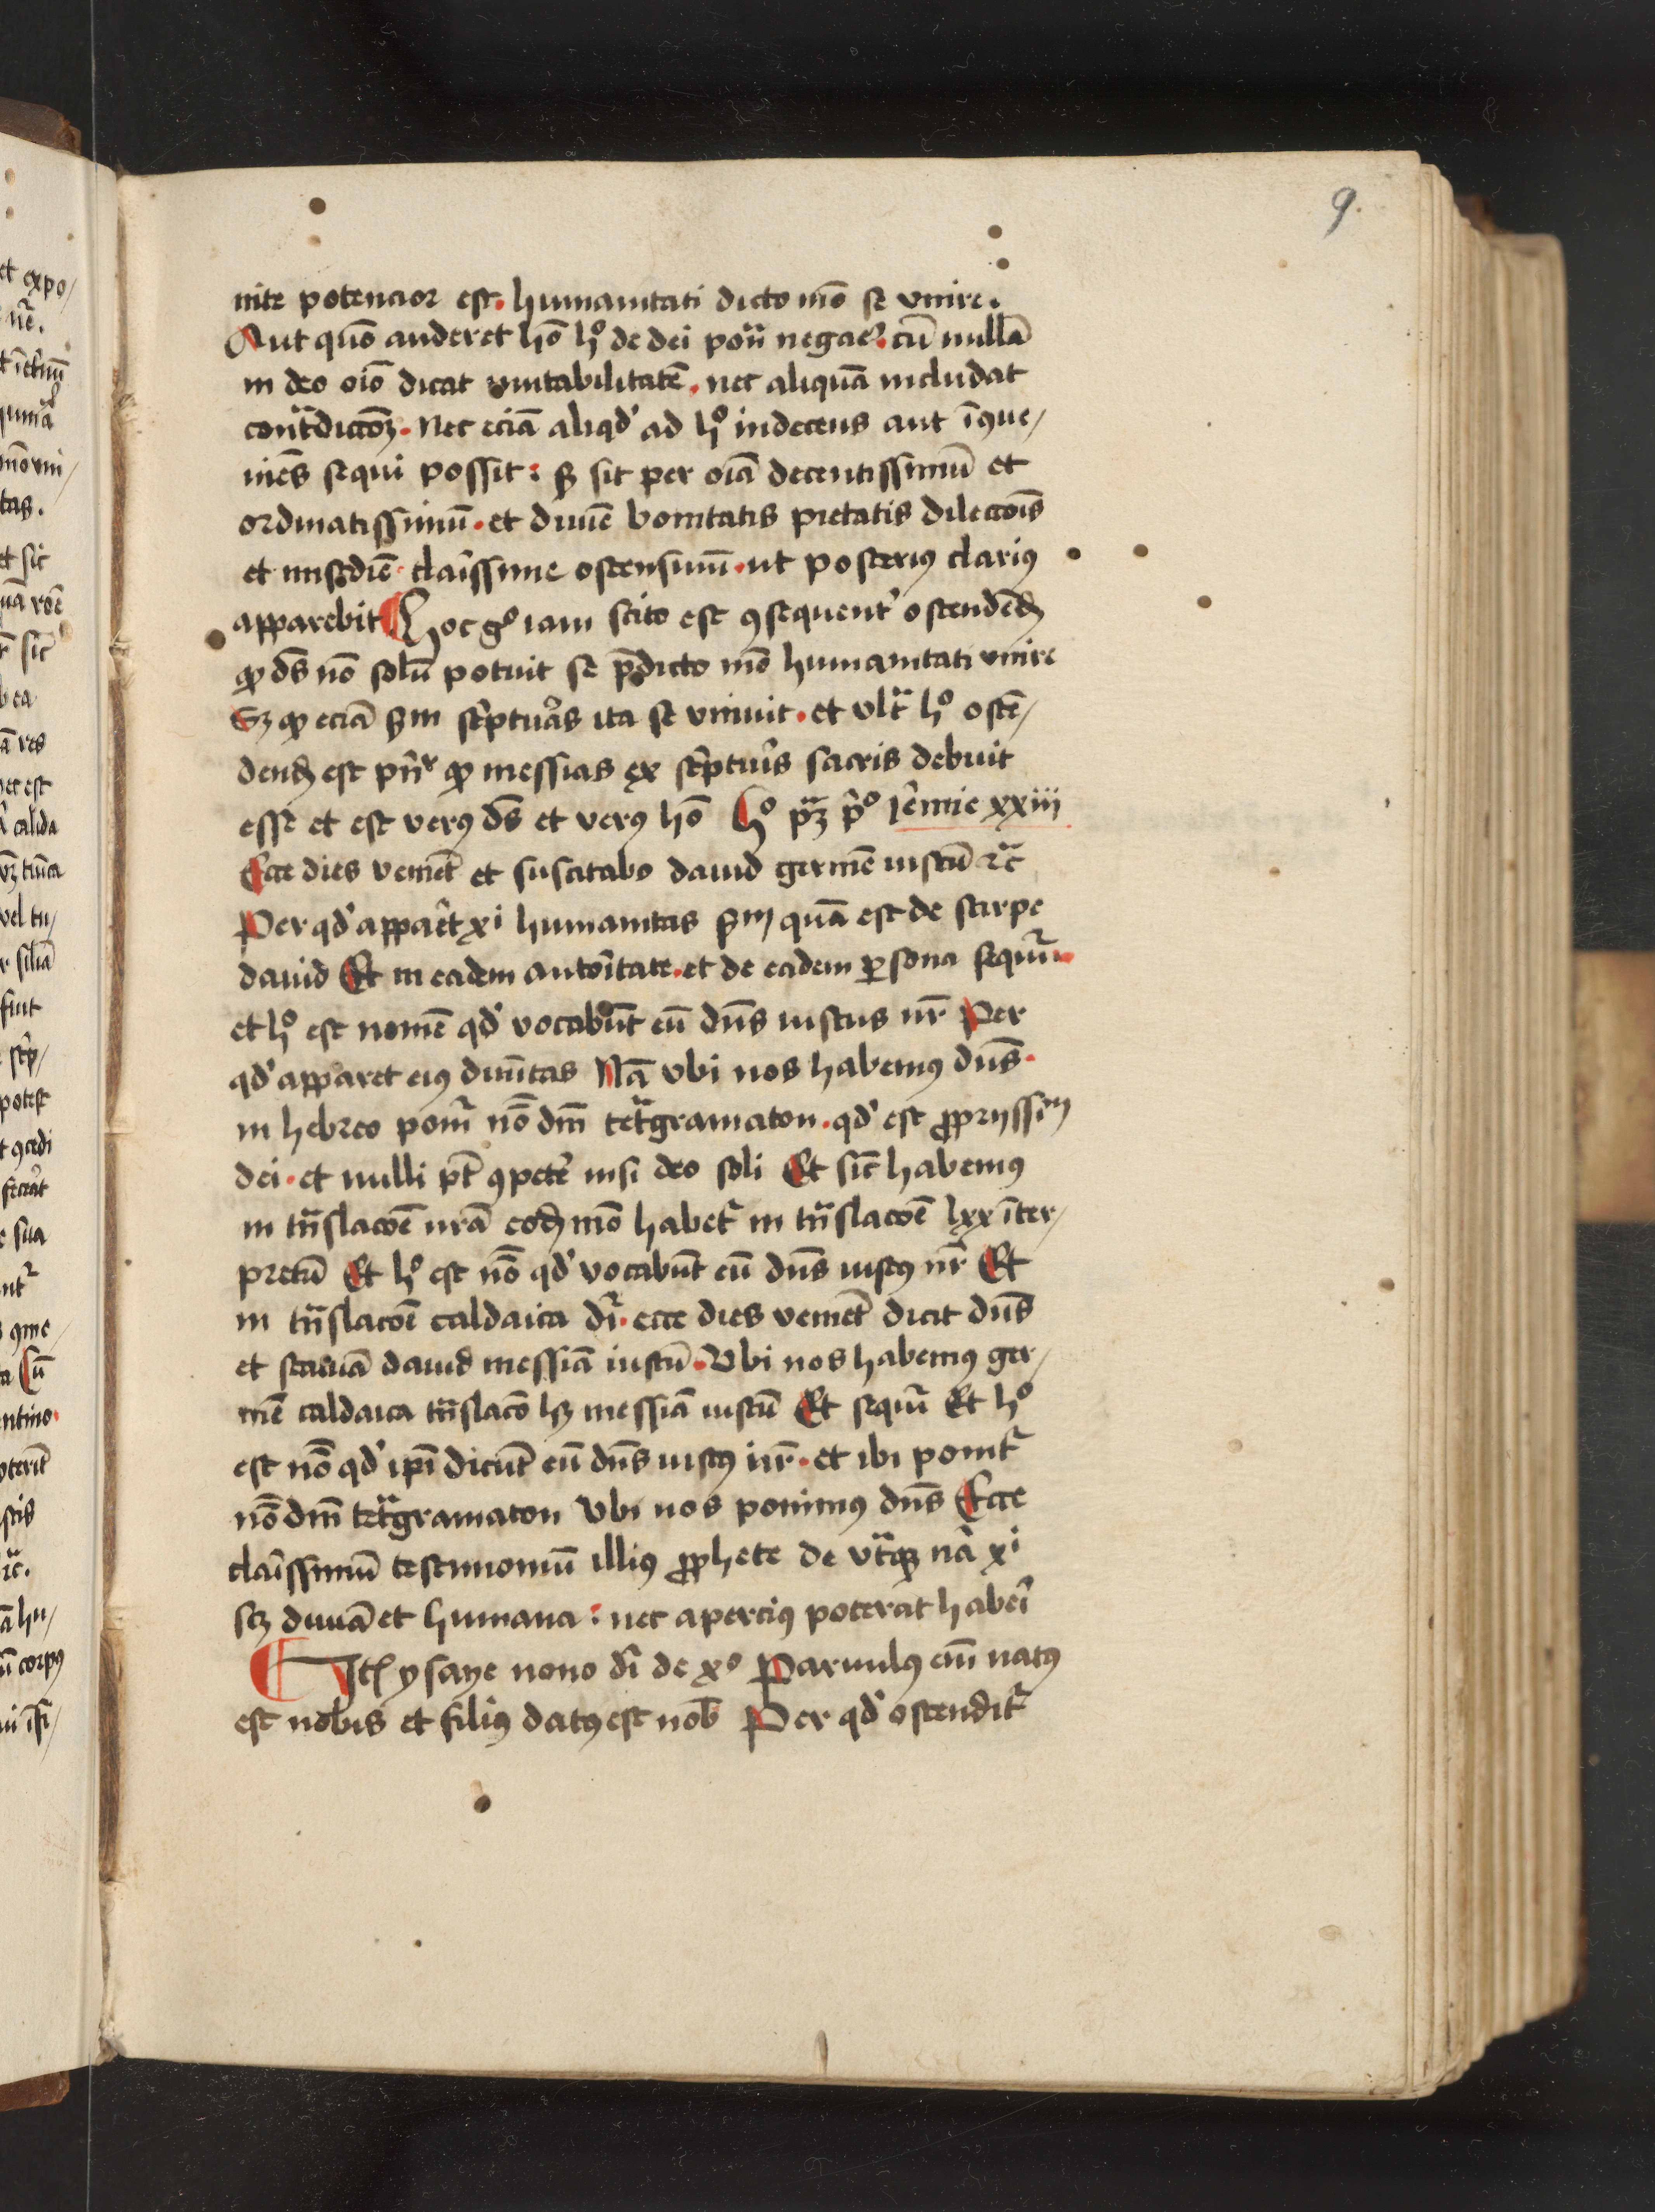 9.
nite potencior est. humanitati dicto mo᷒ se vnire.
Aut quō auderet hō hͦ de dei pon̄ negae᷒. cū nullā
in deo oīo dicat mutabilitatē. nec aliquā includat
cont̄dictōꝫ. Nec eciā aliqd᷒ ad hͦ indecens aut īꝯue/
niēs sequi possit: sꝫ sit per oīa decentissimū et
ordinatissimū. et diuīe bonitatis pietatis dilectōīs
et mīsc̄die clārissime ostensiuū. ut posterius clarius
apparebit Hoc gͦ iam scito est ꝯsequent᷒ ostendēdꝫ
ꝙ dš nō solū potuit se p̄dicto mō humanitati vnire
Sꝫ ꝙ eciā ẜm sc̄ptuās ita se vniuit. et vlt̄ hͦ ostē/
dendꝫ est pn̄r ꝙ messias ex sc̄ptuīs sacris debuit
esse et est verꝰ dš et verꝰ hō Hͦ pꝫ p̄ͦ Jēmie xxiii
Ecce dies veniēt et suscitabo dauid germē iustū ⁊c̄
Per qd᷒ appaēt xi humanitas ẜm quā est de stirpe
dauid Et in eadem autoītate. et de eadem ꝑsona sequit᷒.
et hͦ est nomē qd᷒ vocabūt eū dn̄s iustus nr̄ Per
qd᷒ apparet eiꝰ diuītas Nā vbi nos habemꝰ dn̄s.
in hebreo ponit᷒ nō dn̄i tet̄gramaton. qd᷒ est ꝓprijssim
dei. et nulli pt̄ ꝯpetē nisi deo soli Et sic̄ habemꝰ
in tn̄slacōe nrā eodꝫ mō habet᷒ in tn̄slacōe lxx īter/
pretū Et hͦ est nō qd᷒ vocabūt eū dn̄s iustꝰ nr̄ Et
in tn̄slacōe caldaica dr̄. ecce dies veniēt dicit dn̄s
et statuā dauid messiā iustū. Vbi nos habemꝰ ger/
mē caldaica tn̄slacō hꝫ messiā iustū Et sequit᷒ Et hͦ
est nō qd᷒ ip̄i dicūt eū dn̄s iustꝰ nr̄. et ibi ponit᷒
nō dn̄i tet̄gramaton Vbi nos ponimꝰ dn̄s Ecce
clāissimū testimoniū illiꝰ ꝓphete de vt̄qꝫ nā xi
scꝫ diuīa et humana: nec aperciꝰ poterat habeī
Itē ysaye nono dr̄ de xͦ Paruulꝰ eīm natꝰ
est nobis et filiꝰ datꝰ est nob̄ Per qd᷒ ostendit᷒